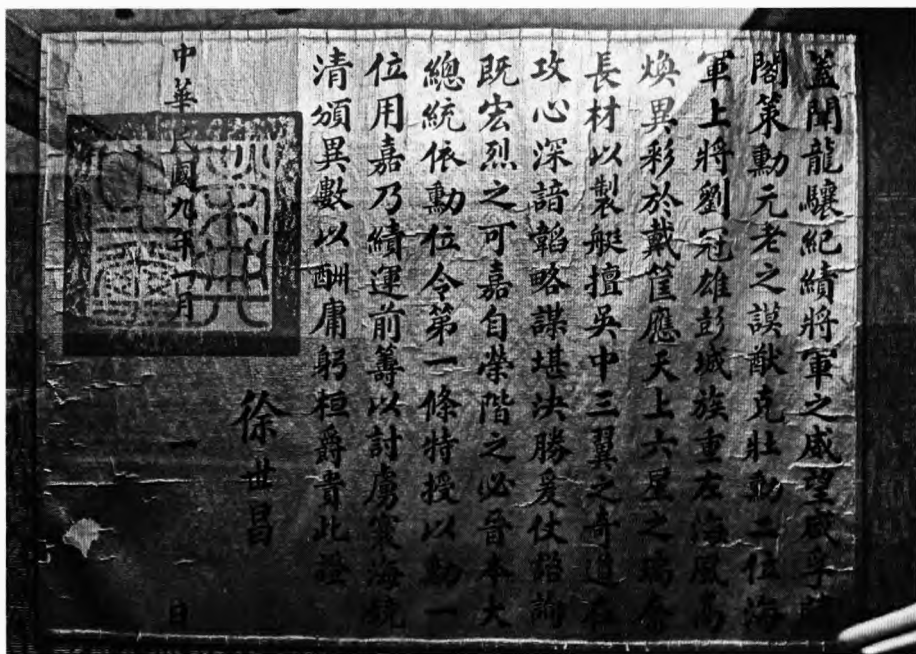 蓋聞龍驤紀績將軍之威望咸孚
閣策勳元老之謨猷克壯勳二位海
軍上將劉冠雄彭城族重左海風高
煥異彩於戴筐應天上六星之瑞
長材以製艇擅吳中三翼之奇道在
攻心深諳韜略謀堪決勝爰仗
既宏烈之可嘉自榮階之必晉本大
總統依勳位令第一條特授以勳一
位用嘉乃績運前籌以討虜寰海鏡
清頒異數以酬庸躬桓爵貴此證
徐世昌
中華民國九年一月一日